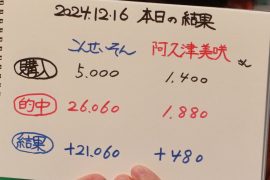 2024.12.16 本日の結果
こんせいそん 阿久津美咲さん
購入 5.000 1.400
的中 26.060 1.880
結果 +21.060 +480